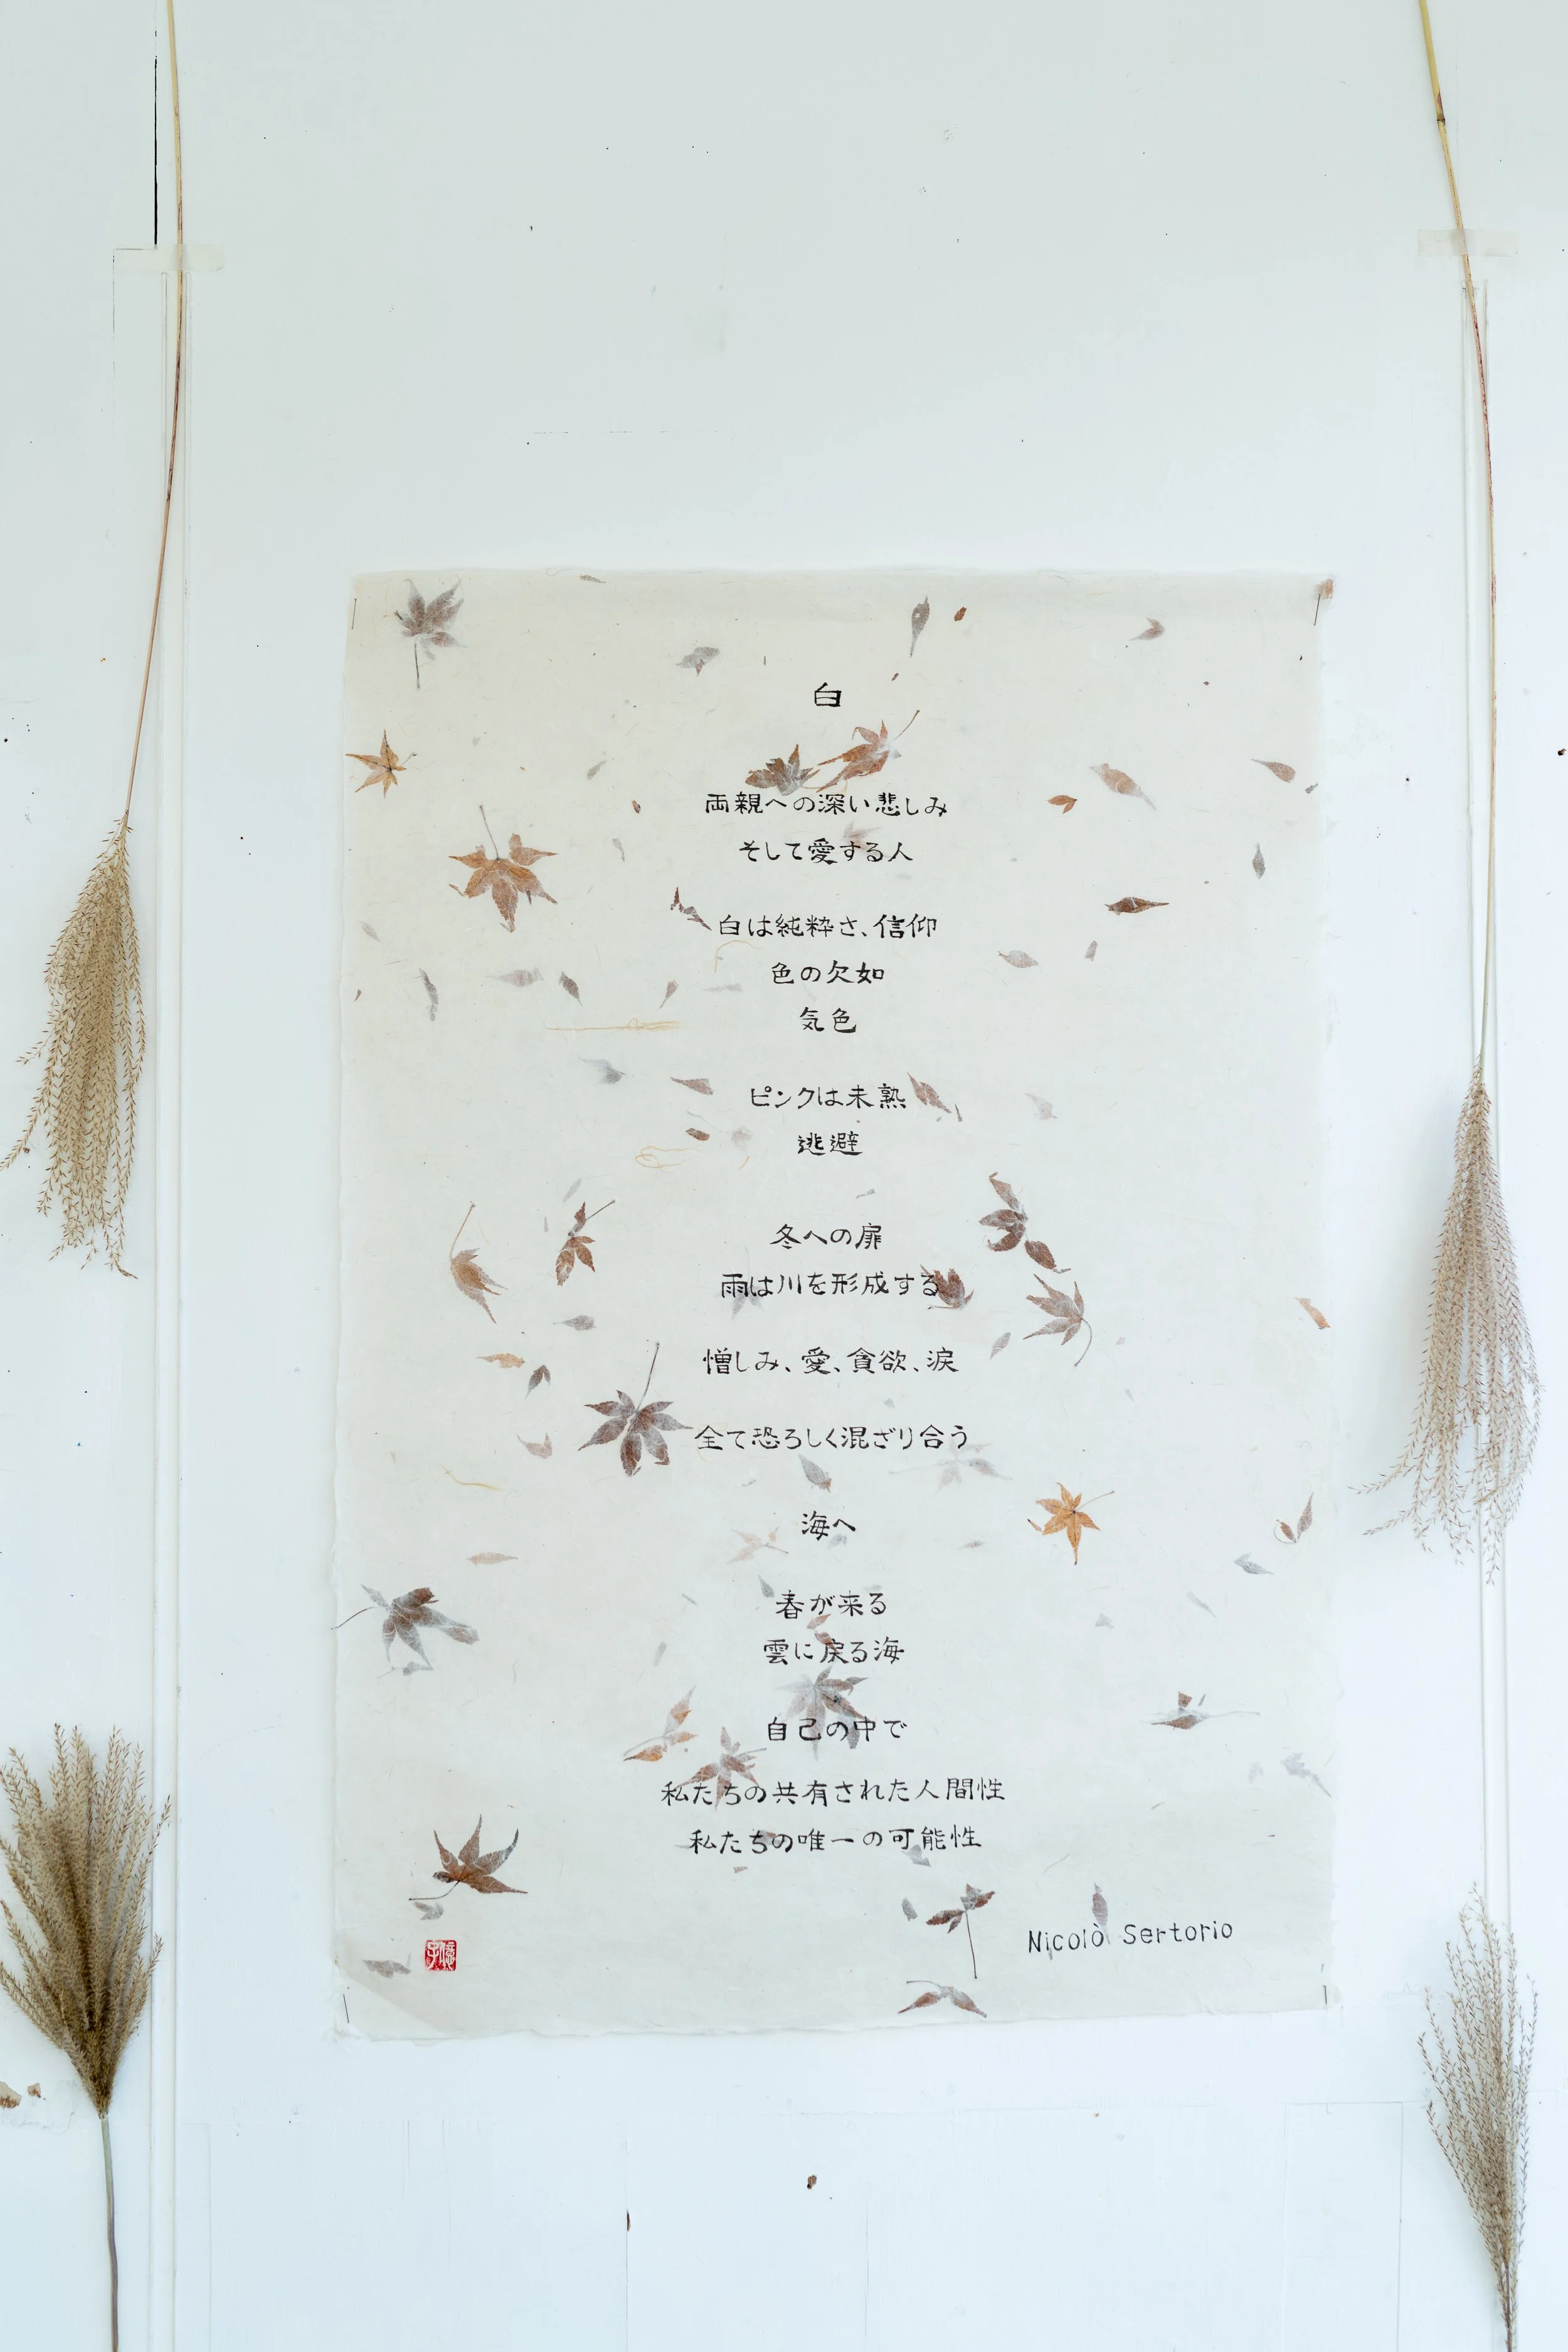 白
両親への深い悲しみ
そして愛する人
白は純粋さ、信仰
色の欠如
気色
ピンクは未熟
逃避
冬への扉
雨は川を形成する
憎しみ、愛、貪欲、涙
全て恐ろしく混ざり合う
海へ
春が来る
雲に戻る海
自己の中で
私たちの共有された人間性
私たちの唯一の可能性
Nicolò Sertorio